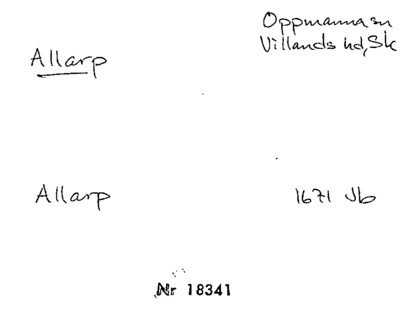 Allarp
Oppmanna sn
Villands hd, Sk
Allarp
1671 Jb
Nr 18341